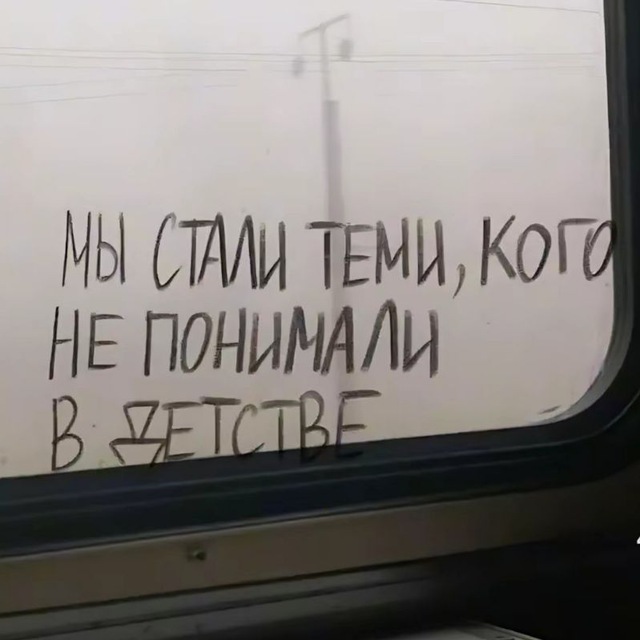 МЫ СТАЛИ ТЕМИ, КОГО
НЕ ПОНИМАЛИ
В ДЕТСТВЕ